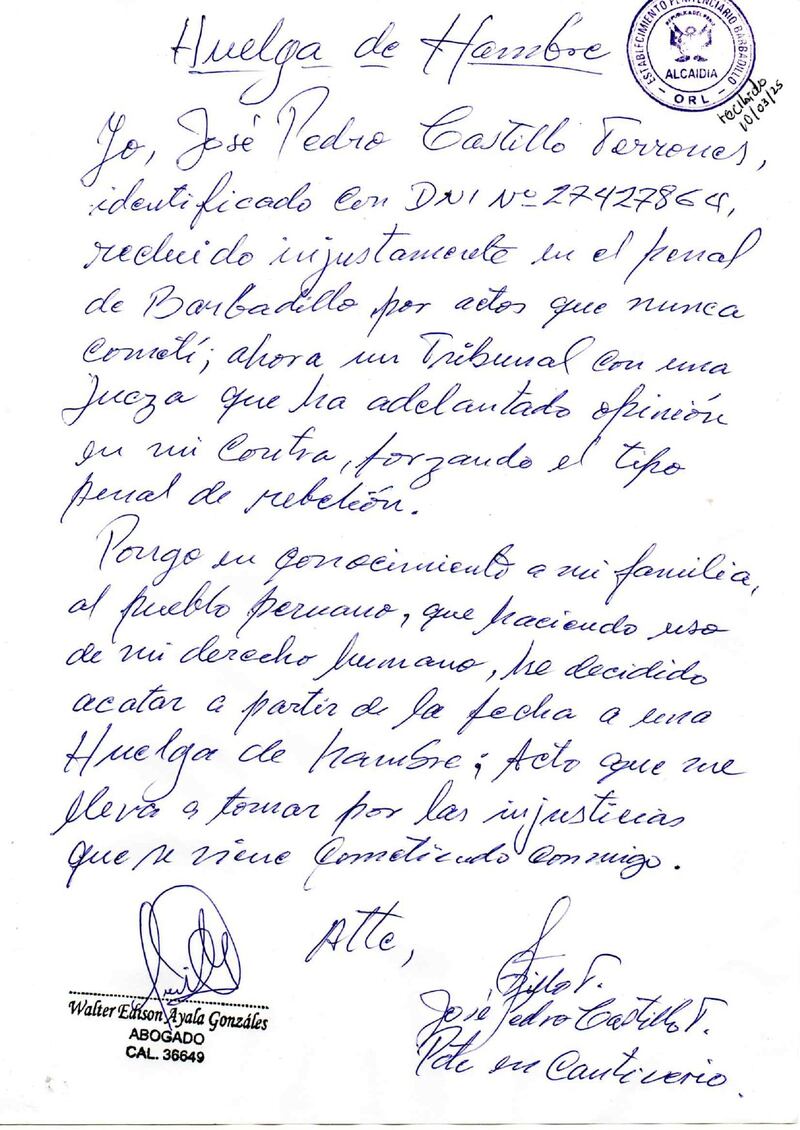 Huelga de Hambre
ESTABLECIMIENTO PENITENCIARIO BARBADILLO
REPUBLICA DEL PERU
ALCAIDIA
- ORL -
recibido
10/03/25
Yo, José Pedro Castillo Terrones,
identificado con DNI Nº 27427864,
recluido injustamente en el penal
de Barbadillo por actos que nunca
cometí; ahora un Tribunal con una
jueza que ha adelantado opinión
en mi contra, forzando el tipo
penal de rebelión.
Pongo en conocimiento a mi familia,
al pueblo peruano, que haciendo uso
de mi derecho humano, he decidido
acatar a partir de la fecha a una
Huelga de hambre; Acto que me
lleva a tomar por las injusticias
que se viene cometiendo conmigo.
Atte,
Walter Edison Ayala Gonzáles
ABOGADO
CAL. 36649
José Pedro Castillo T.
Pdte en Cautiverio.